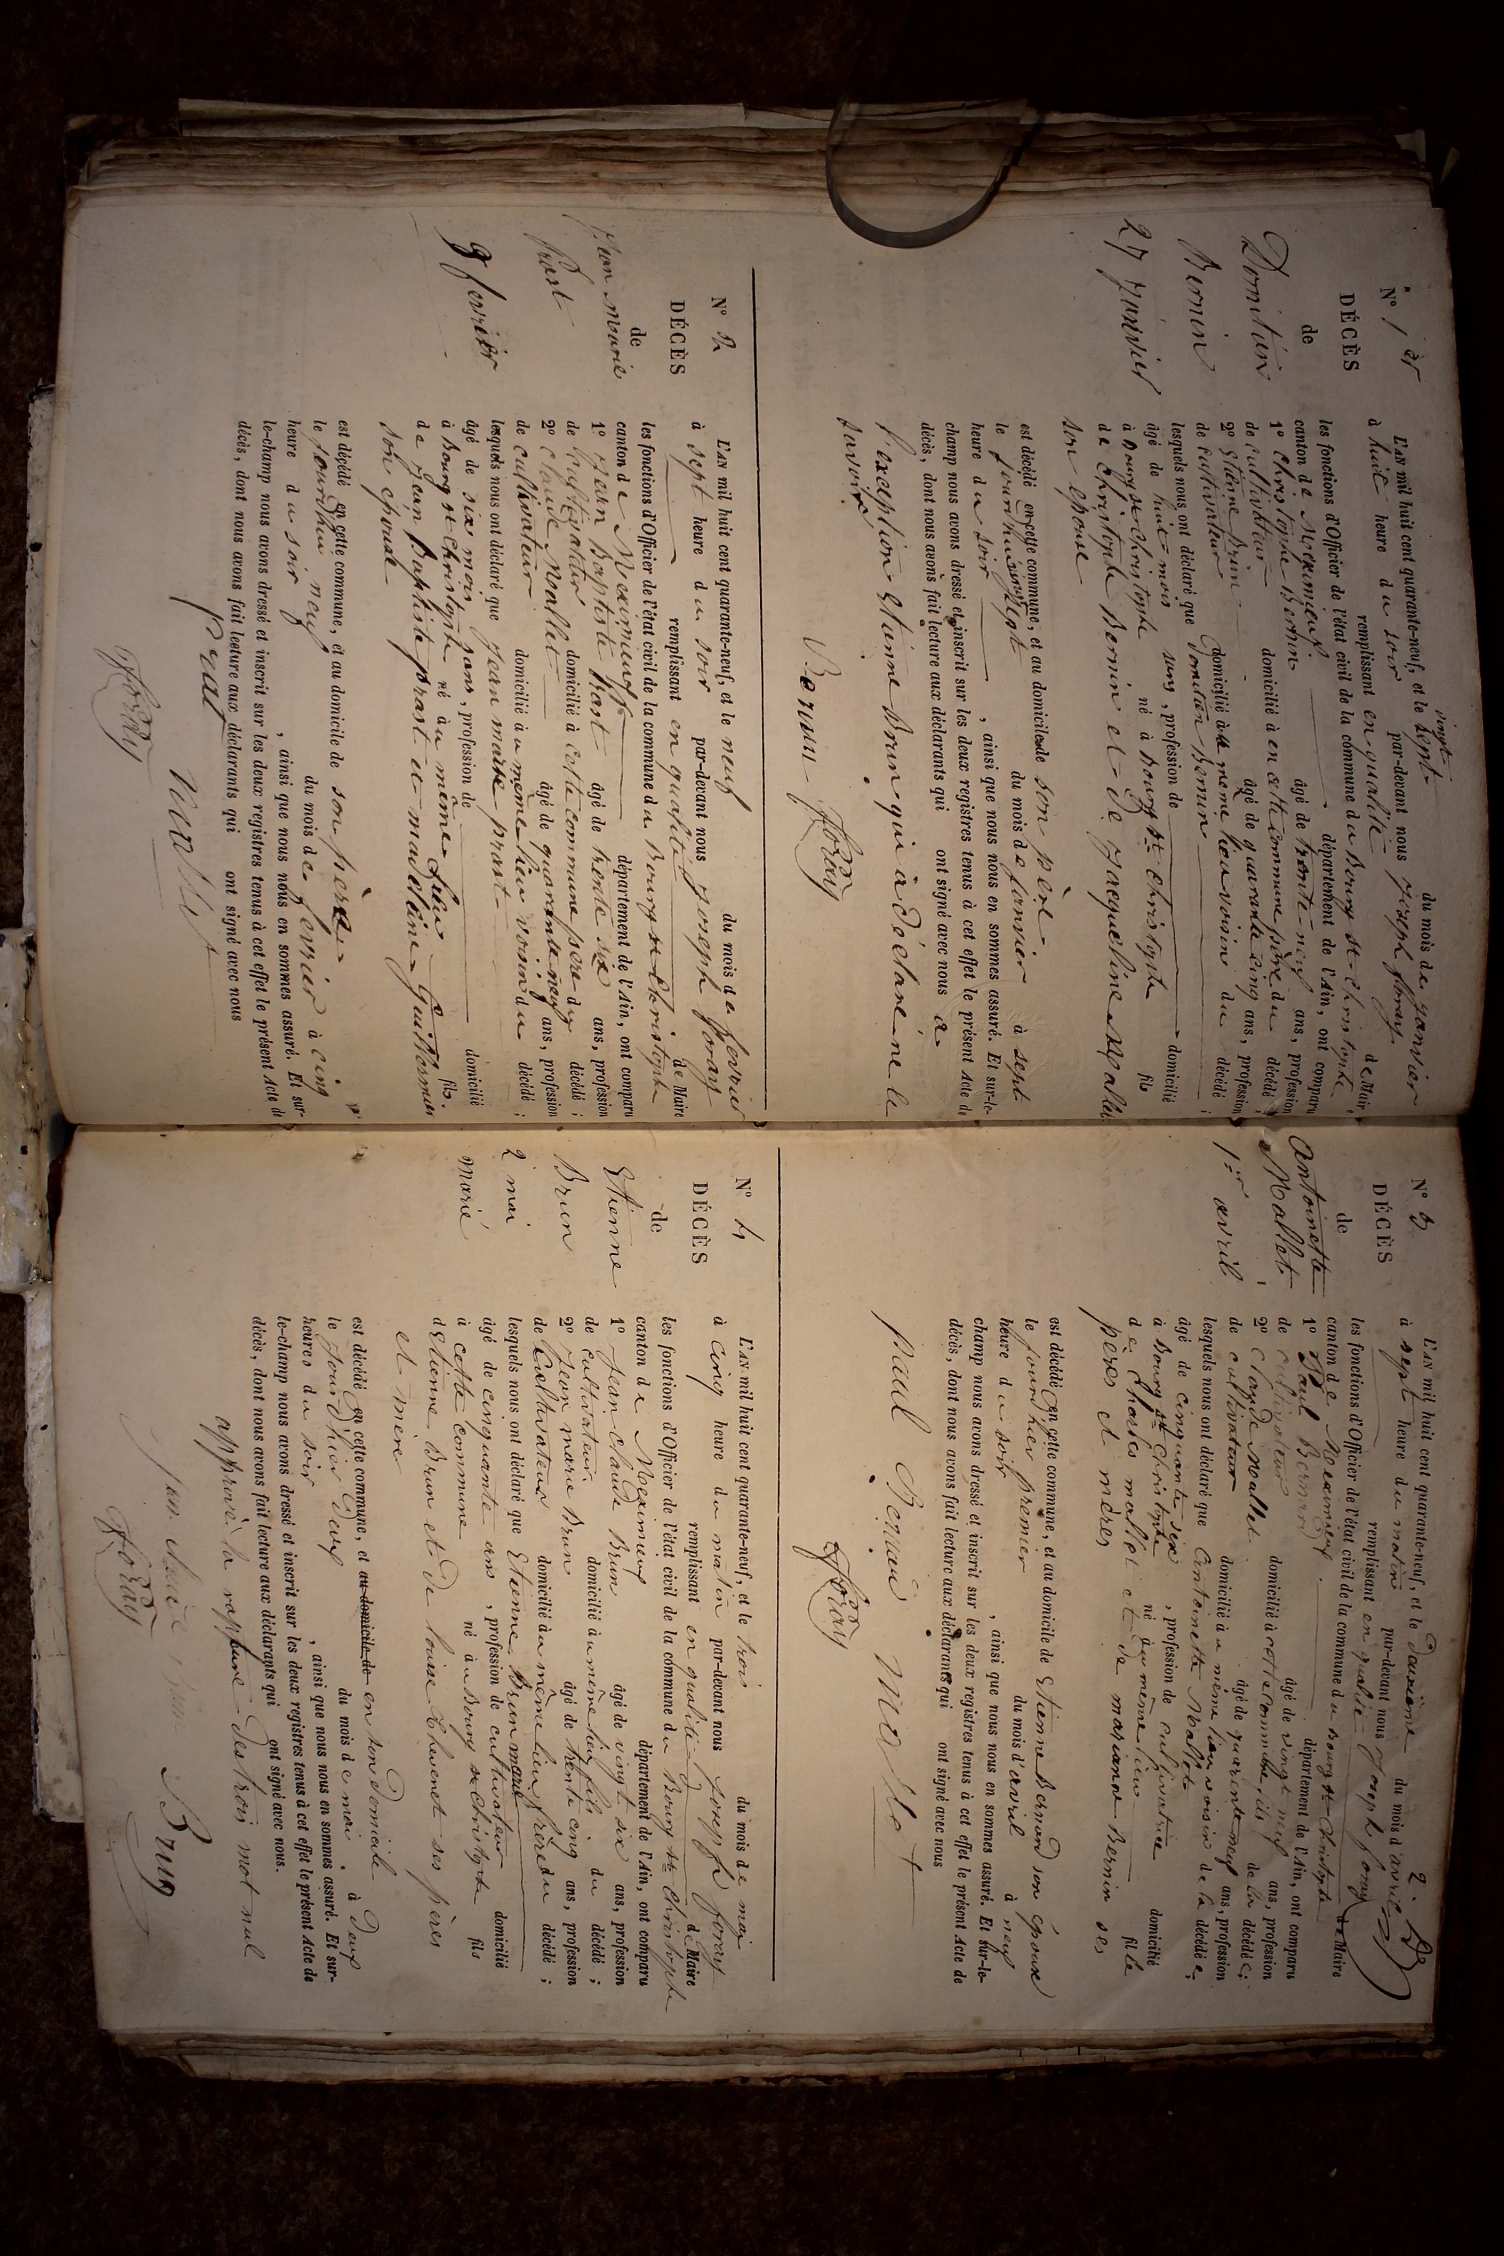 N° 1er
DÉCÈS
de
Domitien
Bernin
27 janvier
L'AN mil huit cent quarante-neuf, et le vingt sept du mois de janvier
à huit heure du soir par-devant nous joseph foray
remplissant en qualité de Maire
les fonctions d'Officier de l'état civil de la commune du Bourg st christophe
canton de Meximieux département de l'Ain, ont comparu
1° christophe Bernin âgé de trente-neuf ans, profession
de cultivateur domicilié à en cette commune père du décédé ;
2° Etienne Brun âgé de quarante cinq ans, profession
de cultivateur domicilié à le meme lieu voisin du décédé ;
lesquels nous ont déclaré que Domitien Bernin
âgé de huit mois sans, profession de domicilié
à Bourg st christophe né à Bourg st christophe fils
de christophe Bernin et de Jacqueline Mallet
son épouse
est décédé en cette commune, et au domicile de son père
le jourd'hui vingt sept du mois de janvier à sept
heure du soir , ainsi que nous nous en sommes assuré. Et sur-le-
champ nous avons dressé et inscrit sur les deux registres tenus à cet effet le présent Acte de
décès, dont nous avons fait lecture aux déclarants qui ont signé avec nous a
l'exception Etienne Brun qui à déclaré ne le
savoir
Bernin foray
N° 2
DÉCÈS
de
Jean marie
Prost
9 fevrier
L'AN mil huit cent quarante-neuf, et le neuf du mois de fevrier
à sept heure du soir par-devant nous joseph foray
remplissant en qualité de Maire
les fonctions d'Officier de l'état civil de la commune du Bourg st christophe
canton de Meximieux département de l'Ain, ont comparu
1° Jean Baptiste Prost âgé de trente six ans, profession
de cultivateur domicilié à cette commune pere du décédé ;
2° claude Mallet âgé de quarante neuf ans, profession
de cultivateur domicilié à u meme lieu voisin du décédé ;
lesquels nous ont déclaré que jean marie prost
âgé de six mois, sans, profession de domicilié
à Bourg st christophe né à u même lieu fils
de Jean Baptiste prost et madelaine Guillermin
son épouse
est décédé en cette commune, et au domicile de son père
le jourdhui neuf du mois de fevrier à cinq
heure du soir , ainsi que nous nous en sommes assuré. Et sur-
le-champ nous avons dressé et inscrit sur les deux registres tenus à cet effet le présent Acte de
décès, dont nous avons fait lecture aux déclarants qui ont signé avec nous
Prat Mallet
foray
2.
N° 3
DÉCÈS
de
Antoinette
Mallet
1er avril
L'AN mil huit cent quarante-neuf, et le deuxième du mois d'avril
à sept heure du matin par-devant nous Joseph foray
remplissant en qualité de Maire
les fonctions d'Officier de l'état civil de la commune du Bourg st christophe
canton de Meximieux département de l'Ain, ont comparu
1° Paul Bernard âgé de vingt neuf ans, profession
de cultivateur domicilié à cette commune fils de la décédée ;
2° claude Mallet âgé de quarente neuf ans, profession
de cultivateur domicilié à u même lieu voisin de la décédée ;
lesquels nous ont déclaré que Antoinette Mallet
âgé de cinquante six , profession de cultivatrice domicilié
à Bourg st christophe né à u même lieu fille
de charles mallet et de mariane Bernin ses
peres et mères
est décédé en cette commune, et au domicile de Etienne Bernard son époux
le jourdhier premier du mois d'avril à neuf
heure du soir , ainsi que nous nous en sommes assuré. Et sur-le-
champ nous avons dressé et inscrit sur les deux registres tenus à cet effet le présent Acte de
décès, dont nous avons fait lecture aux déclarants qui ont signé avec nous
paul Bernard Mallet
foray
N° 4
DÉCÈS
de
Etienne
Brun
2 mai
Marié
L'AN mil huit cent quarante-neuf, et le trois du mois de mai
à cinq heure du matin par-devant nous Joseph foray
remplissant en qualité de Maire
les fonctions d'Officier de l'état civil de la commune du Bourg st christophe
canton de Meximieux département de l'Ain, ont comparu
1° Jean claude Brun âgé de vingt six ans, profession
de cultivateur domicilié à u même lieu fils du décédé ;
2° Jean marie Brun âgé de trente cinq ans, profession
de Cultivateur domicilié à u même lieu frère du décédé ;
lesquels nous ont déclaré que Etienne Brun marié
âgé de cinquante ans , profession de cultivateur domicilié
à cette commune né à u Bourg st christophe fils
d Etienne Brun et de Louise Chuenet ses pères
et mère
est décédé en cette commune, et au domicile de en son domicile
le jourd'hier deux du mois de mai à deux
heures du soir , ainsi que nous nous en sommes assuré. Et sur-
le-champ nous avons dressé et inscrit sur les deux registres tenus à cet effet le présent Acte de
décès, dont nous avons fait lecture aux déclarants qui ont signé avec nous.
approuvé la rappure des trois mot nul
Brun
foray